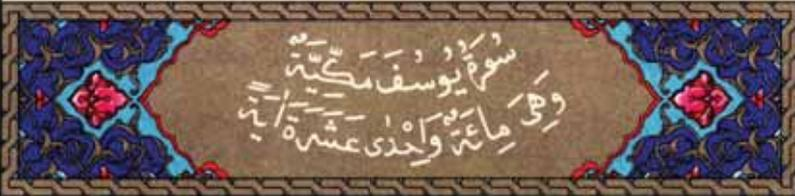 سُورَةُ يُوسُفَ مَكِّيَّةٌ
وَهِيَ مِائَةٌ وَإِحْدٰى عَشْرَةَ اٰيَةً